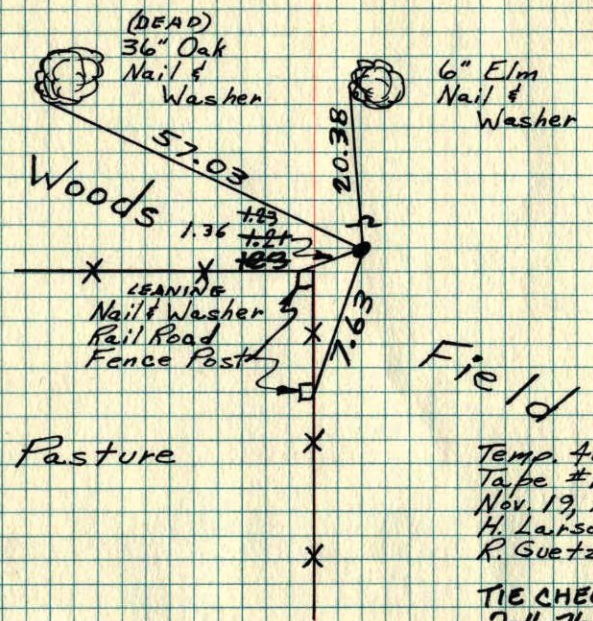 (DEAD)
36" Oak
Nail &
Washer
6" Elm
Nail &
Washer
57.03
20.38
Woods
1.23
1.36 1.21
LEANING
Nail & Washer
Rail Road
Fence Post
7.63
Field
Pasture
Temp.
Tape
Nov. 19,
H.
R.
TIE